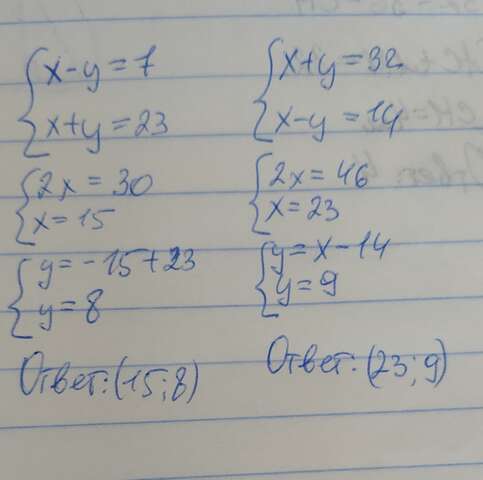 x-y=7
x+y=23
2x=30
x=15
y=-15+23
y=8
Ответ:(15;8)
x+y=32
x-y=14
2x=46
x=23
y=x-14
y=9
Ответ:(23;9)